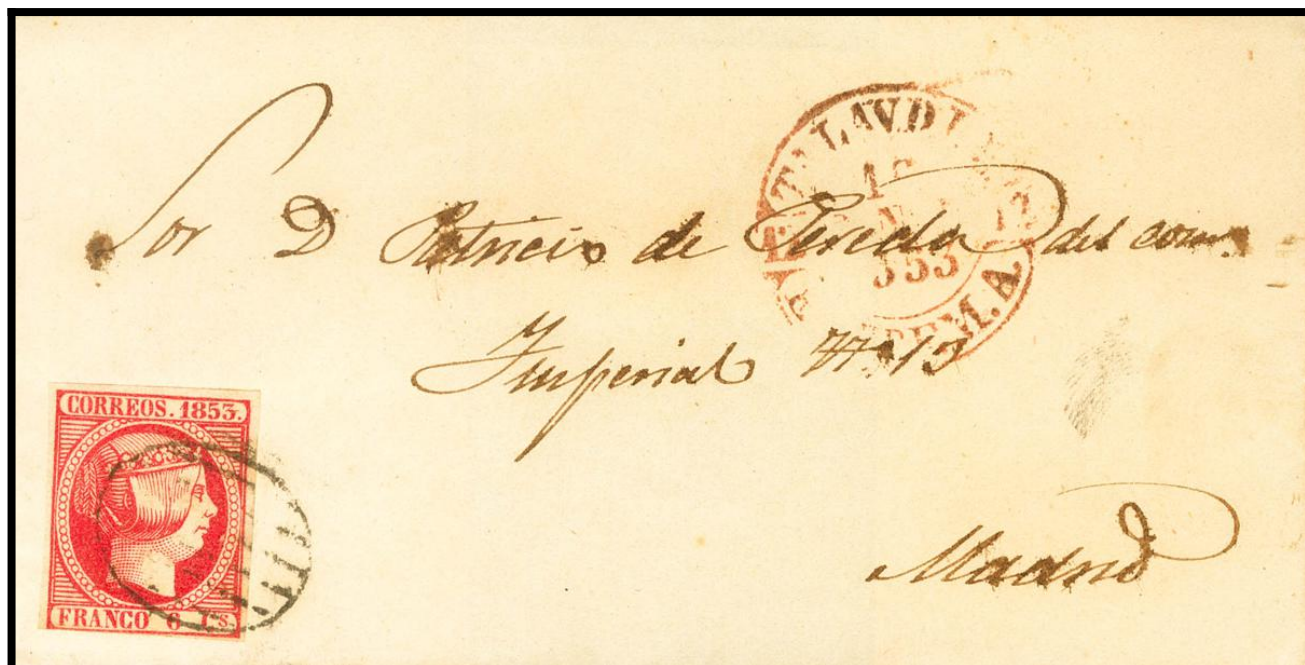 Sor D Patricio de Pereda del com.
Imperial N.º 13
Madrid
CORREOS. 1853.
FRANCO 6 Cs.